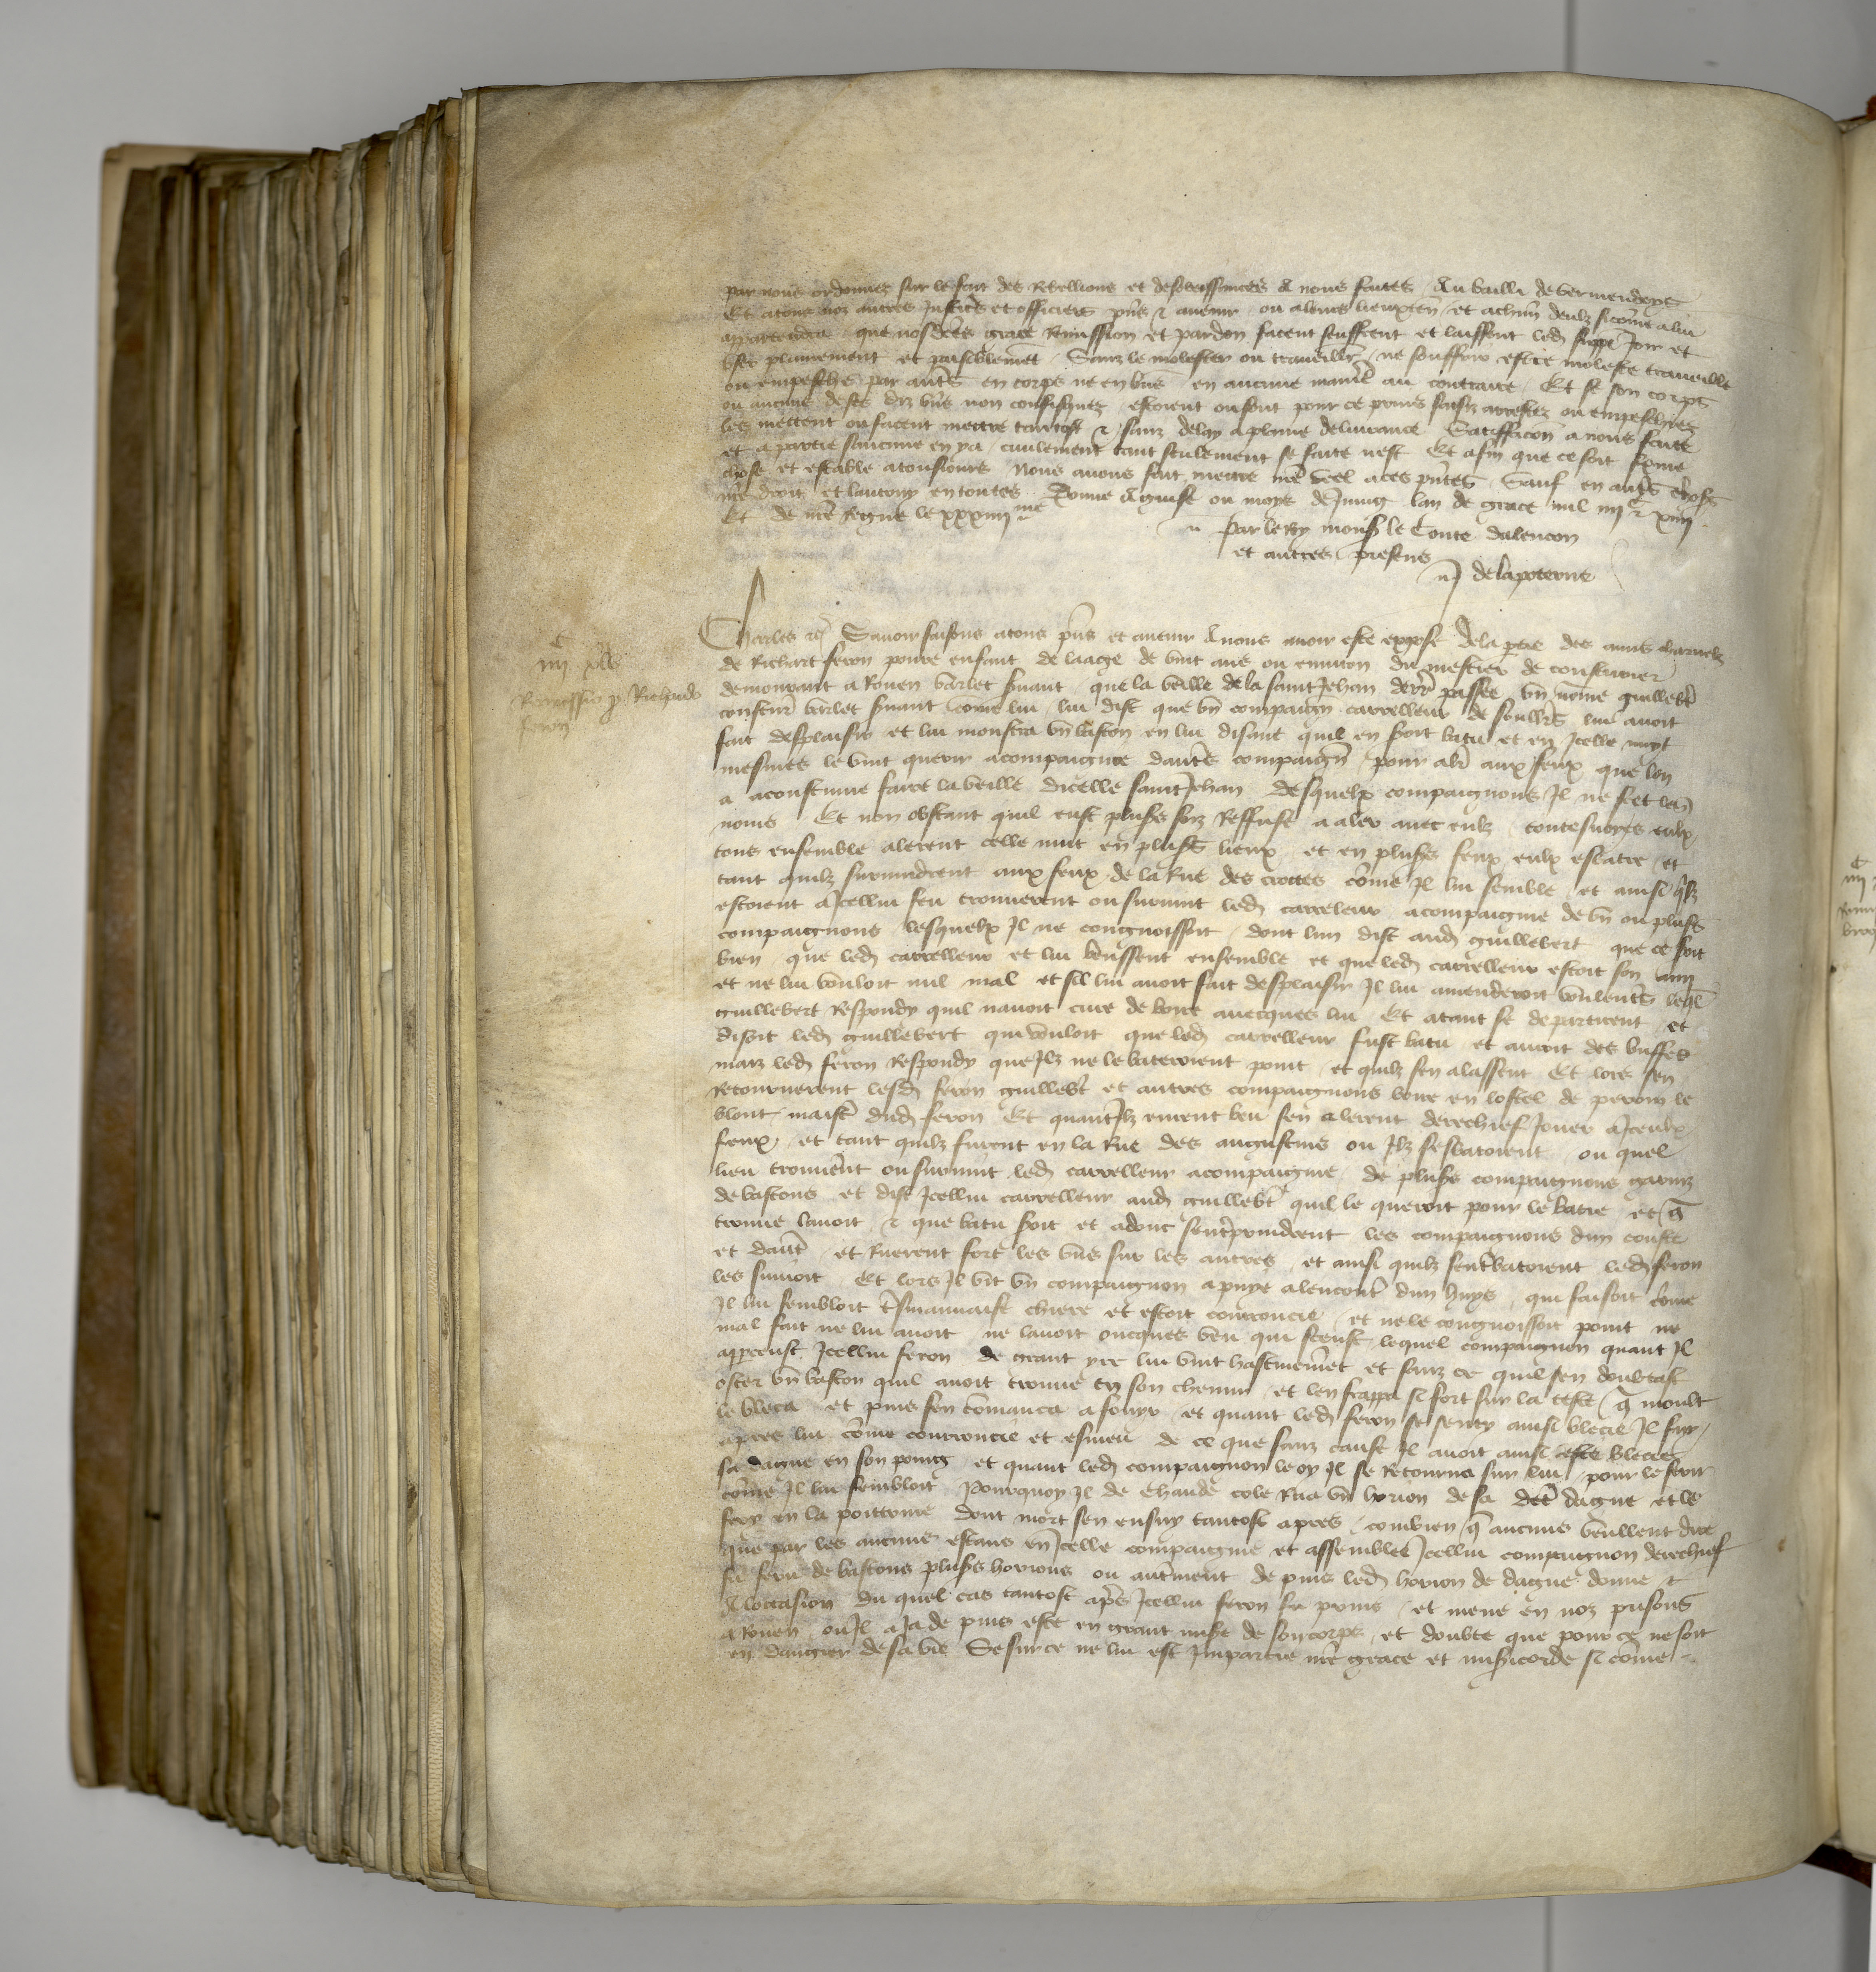 par nous ordonnez sur le fait des Rebellions et desobeissances A nous faites / Au bailli de vermendois
Et a tous noz autres Justic̃s et officiers pñs ⁊ auenir ou a leurs lieuxteñ / et a chũn deulz si cõme a lui
appartendra que nos dc̃es grace Remission et pardon facent seuffrent et laissent led̃ suppĩ Joir et
user plainement et paisiblemẽt Sanz le molester ou traueillir / ne souffrir estre moleste traueillie
ou empeschie par autẽs en corps ne en biẽs en aucune maniẽ au contraire / Et se son corps
ou aucuns de ses diz biẽs non confisquez estoient ou sont pour ce prins saisiz arrestez ou empeschiez
les mettent ou facent mettre tantost ⁊ sanz delay a plaine deliurance Satisfacõn a nous faite
et a partie saucune en y a / ciuilement tant seulement se faite nest Et afin que ce soit ferme
chose et estable a tousiours Nous auons fait mettre nr̃e Seel a ces pñtes Sauf en autẽs choses
nr̃e droit et lautruy en toutes Donne A guise ou moys de Juing lan de grace mil iiij ⁊ xiiij
Et de nr̃e Regne le xxxiiij me
Par le Roy mons̃ le Conte dalencon
et autres presens
de laporterne
Charles ⁊c̃ Sauoir faisons a tous pñs et auenir A nous auoir este expose de la ptie des amis charnelz
de Richart feron poure enfant de laage de vint ans ou enuiron du mestier de cousturier
demourant a Rouen varlet s̃uant que la veille de la saint Jehan derr̃ passee vñ nõme guillebt̃
consturĩ varlet s̃uant come lui / lui dist que vñ compaign̄ carrelleur de soullẽs lui auoit
fait desplaisir et lui monstra vñ baston en lui disant quil en s̃oit batu et en Jcelle nuyt
mesmes le vint querir acompaignie dautẽs compaign̄s / pour aleĩ aux feux que lon
a acoustume faire la veille dicelle saint Jehan desquelx compaignons Jl ne scet les
noms Et non obstant quil eust plus̃s foiz Reffuse a aler auec eulz toutesuoyes eulx
tous ensemble alerent celle nuit en plus̃s lieux et en plus̃s feux eulx esbatre / et
tant quilz suruindrent aux feux de la Rue des crottes cõme Jl lui semble et ainsi q̃lz
estoient a Jcellui feu trouuerent ou suruint led̃ carreleur acompaignie de vñ ou plus̃s
compaignons lesquelx Jl ne congnoissoit dont lun dist aud̃ guillebert que ce s̃oit
bien que led̃ carrelleur et lui beussent ensemble et que led̃ carrelleur estoit son amy
et ne lui vouloit nul mal et sil lui auoit fait desplaisir Jl lui amenderoit voulentẽs leq̃l
guillebert Respondy quil nauoit cure de boire auecques lui Et atant se departirent / et
disoit led̃ guillebert qui vouloit que led̃ carrelleur fust batu et auroit des buffes
maiz led̃ feron Respondy que Jlz ne le bateroient point et quilz sen alassent Et lors sen
Retournerent lesd̃ feron guillebt̃ et autres compaignons boire en lostel de perrin le
blont maistr̃ dud̃ feron Et quant Jlz eurent beu sen alerent derechief Jouer a Jceulx
feux / et tant quilz furent en la Rue des augustins ou Jlz sesbatoient ou quel
lieu trouuer̃nt ou suruint led̃ carrelleur acompaignie de plus̃s compaignons garniz
de bastons et dist Jcellui carrelleur aud̃ guillebt̃ quil le queroit pour le batre et q̃
trouue lauoit ⁊ que batu s̃oit et adonc sentr̃prindrent les compaignons dun coste
et dautr̃ et Ruerent fort les vñs sur les autres et ainsi quilz sentr̃batoient led̃ feron
les suiuoit Et lors Jl vit vñ compaignon apuye alencontr̃ dun huys qui faisoit cõme
Jl lui sembloit tr̃s mauuaise chiere et estoit courroucie / et ne le congnoissoit point ne
mal fait ne lui auoit ne lauoit oncques veu qui sceust lequel compaignon quant Jl
apperceust Jcellui feron de grant yre lui vint hastiuemẽt et sanz ce quil sen doubtast
oster vñ baston quil auoit trouue en son chemin / et len frappa si fort sur la teste / q̃ moult
le bleca et puis sen cõmanca a fouyr et quant led̃ feron se senty ainsi blecie Jl fuy
apres lui cõme courroucie et esmeu de ce que sanz cause Jl auoit ainsi este blecie
sa dague en son poing et quant led̃ compaignon le oy Jl se Retourna sur lui / pour le ferir
cõme Jl lui sembloit Pourquoy Jl de chaude cole Rua vñ horion de sa dc̃e dague et le
fery en la poittrine dont mort sen ensuy tantost apres / combien q̃ aucuns veullent dire
que par les aucuns estans en Jcelle compaignie et assemblee Jcellui compaignon derechief
fu feru de bastons plus̃s horions ou autr̃ment de puis led̃ horion de dague donne ⁊
A loccasion du quel cas tantost apr̃s Jcellui feron fu prins / et mene en noz prisons
a Rouen ou Jl a Ja de puis este en grant mis̃e de son corps / et doubte que pour ce ne soit
en dangier de sa vie Se sur ce ne lui est Jmpartie nr̃e grace et mis̃icorde si come
Remissio p̱ Richardo
feron